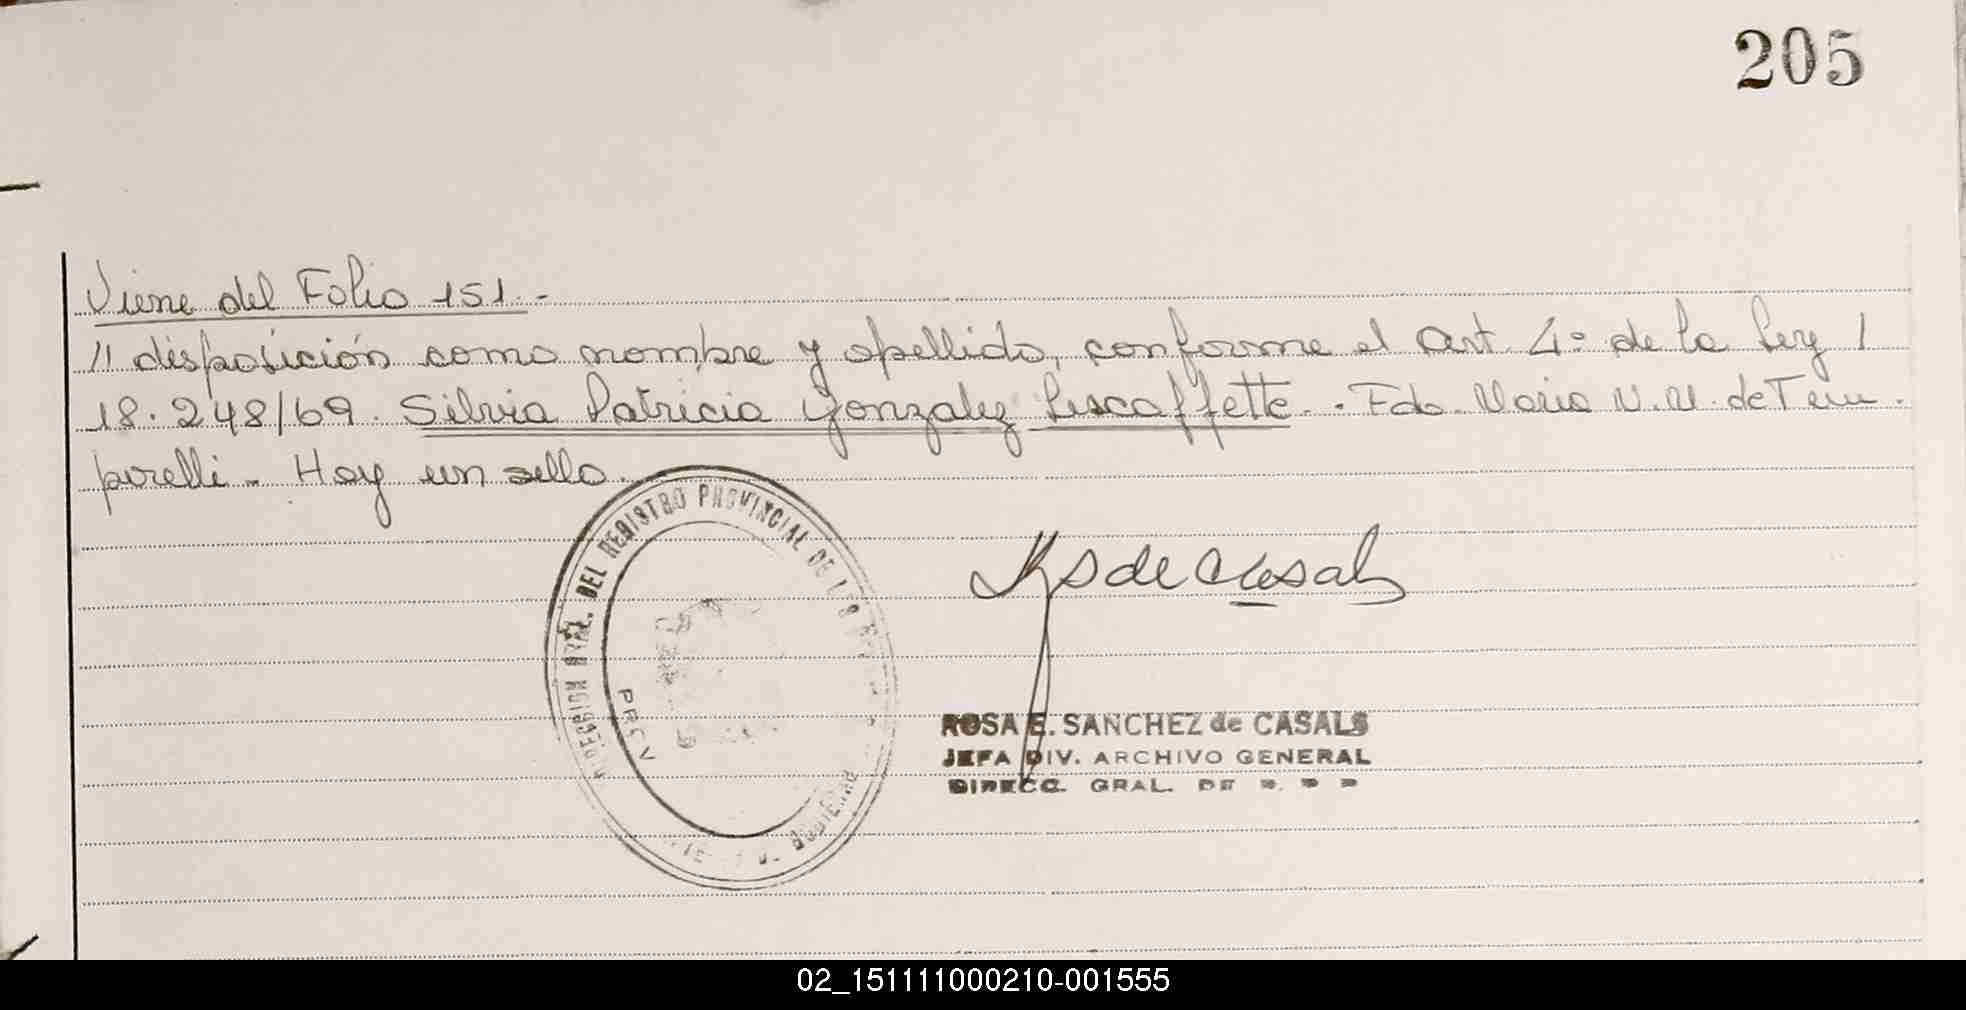 205
Viene del Folio 151.-
// disposición como nombre y apellido, conforme el Art 4º de la Ley /
18.248/69. Silvia Patricia Gonzalez Pescaffette.. Fdo. Maria N.N. de Tem
porelli. Hay un sello.
DIRECCION GRAL. DEL REGISTRO PROVINCIAL DE LAS
S de Casals
ROSA E. SANCHEZ de CASALS
JEFA DIV. ARCHIVO GENERAL
DIRECC. GRAL. DE R.
02_151111000210-001555